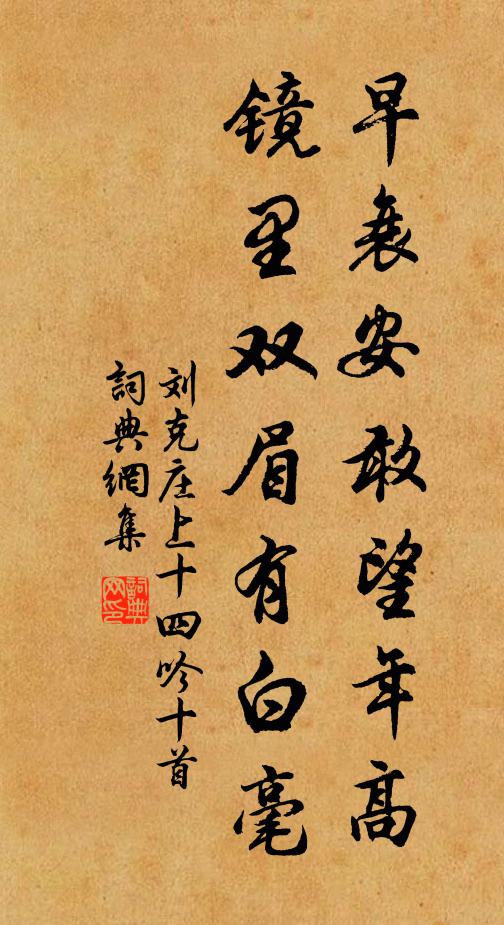 早衰安敢望年高
镜里双眉有白毫
刘克庄上十四吟十首
詞典網集
詞典網印